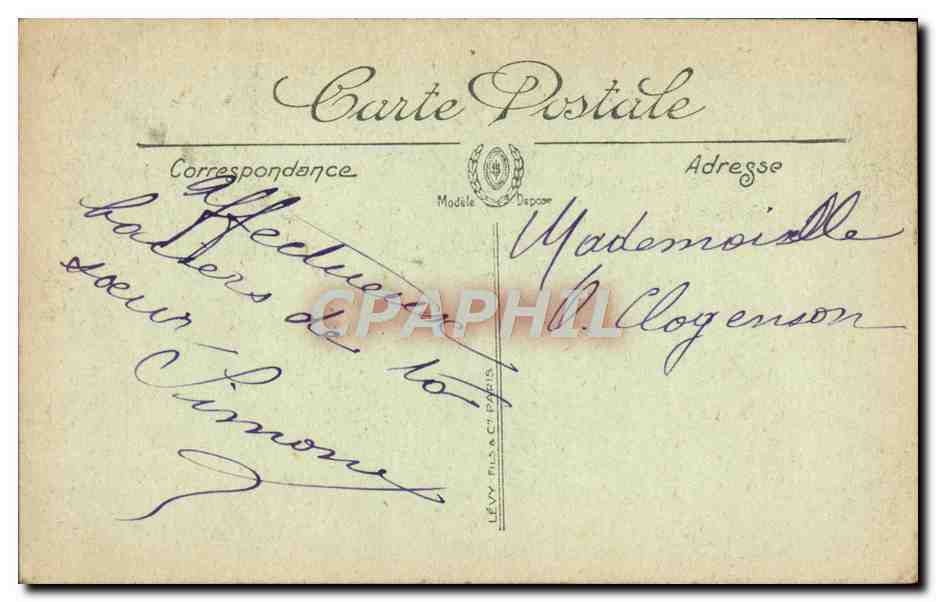 Carte Postale
Correspondance
Adresse
Modèle Déposé
affectueux
baisers de ta
sœur Simone
Mademoiselle
O. Clogenson
CPAPHIL
LÉVY FILS & Cie PARIS